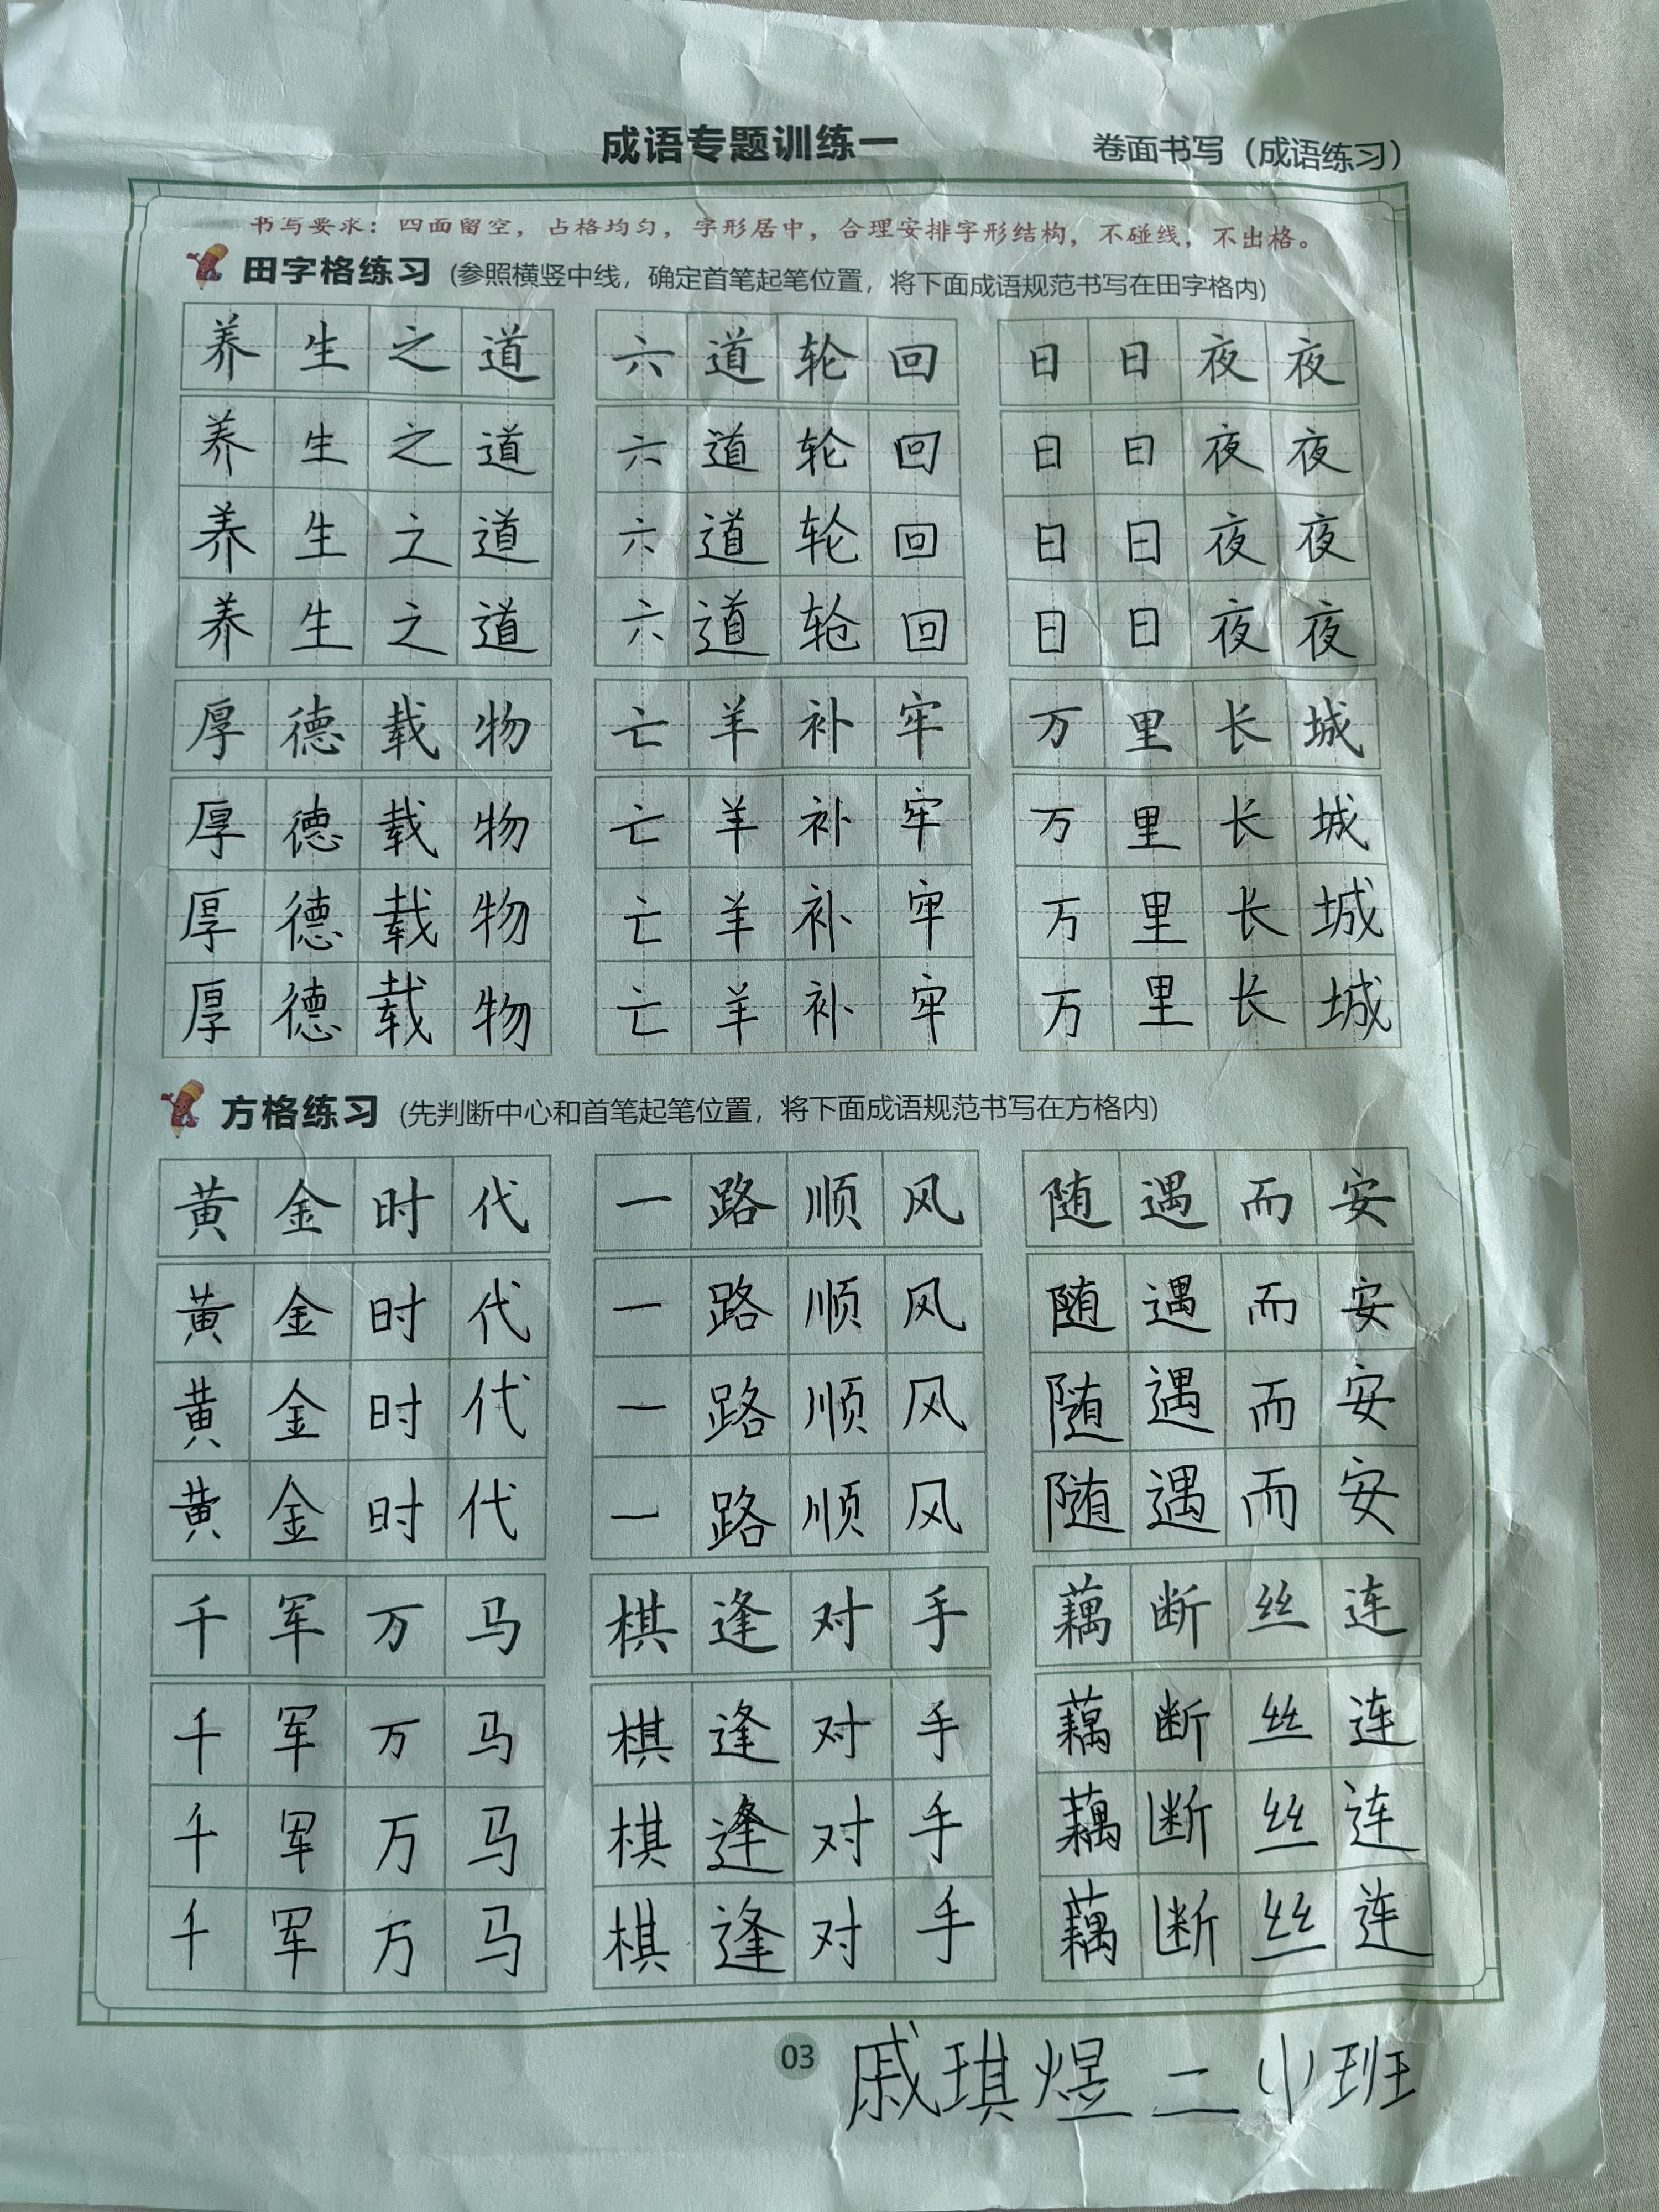 成语专题训练一 卷面书写（成语练习）
书写要求：四面留空，占格均匀，字形居中，合理安排字形结构，不碰线，不出格。
田字格练习 (参照横竖中线，确定首笔起笔位置，将下面成语规范书写在田字格内)
养生之道 六道轮回 日日夜夜
养生之道 六道轮回 日日夜夜
养生之道 六道轮回 日日夜夜
养生之道 六道轮回 日日夜夜
厚德载物 亡羊补牢 万里长城
厚德载物 亡羊补牢 万里长城
厚德载物 亡羊补牢 万里长城
厚德载物 亡羊补牢 万里长城
方格练习 (先判断中心和首笔起笔位置，将下面成语规范书写在方格内)
黄金时代 一路顺风 随遇而安
黄金时代 一路顺风 随遇而安
黄金时代 一路顺风 随遇而安
黄金时代 一路顺风 随遇而安
千军万马 棋逢对手 藕断丝连
千军万马 棋逢对手 藕断丝连
千军万马 棋逢对手 藕断丝连
千军万马 棋逢对手 藕断丝连
03 戚琪煜 二小班